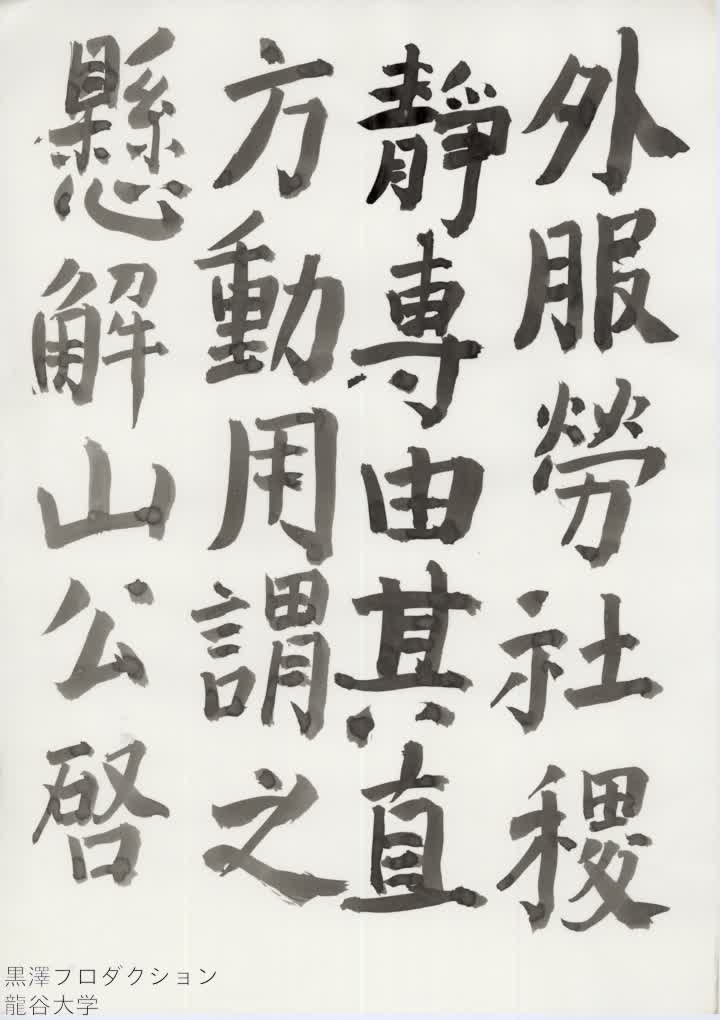 外服勞社稷
靜專由其直
方動用謂之
懸解山公啓
黒澤プロダクション
龍谷大学